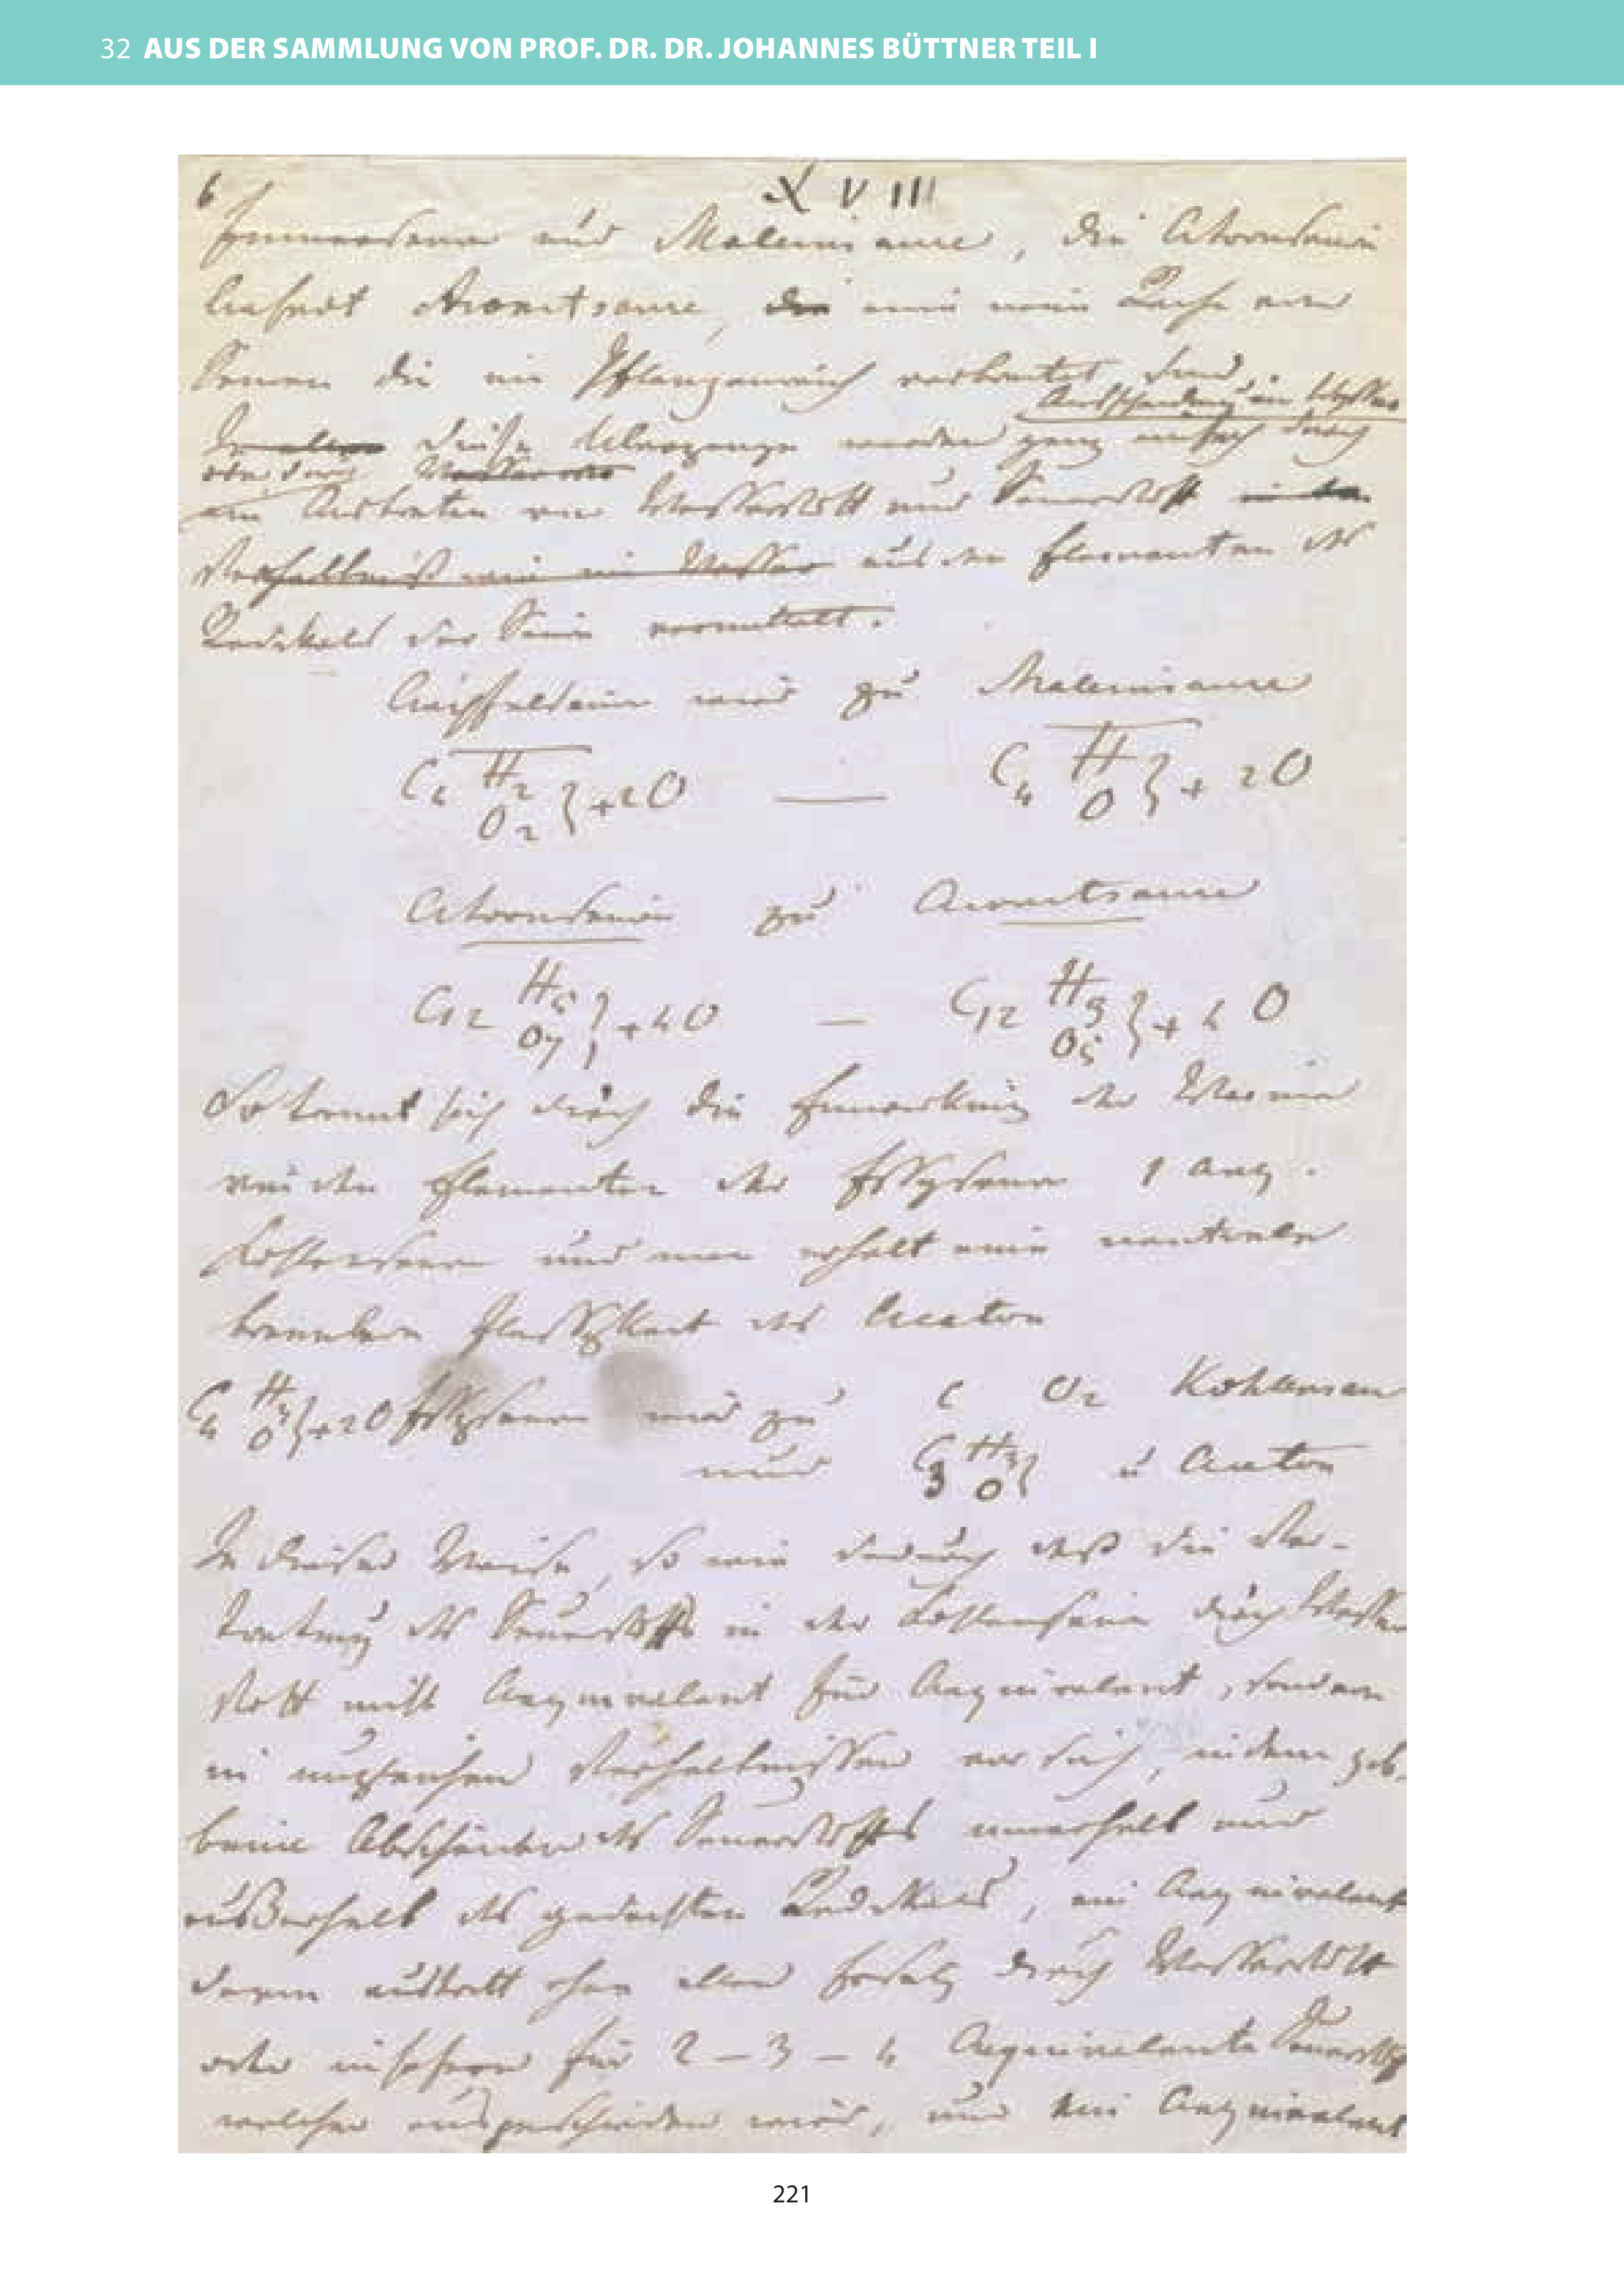 32 AUS DER SAMMLUNG VON PROF. DR. DR. JOHANNES BÜTTNER TEIL I
6
XVIII
und Maleinsäure, die Citronensäure
liefert Aconitsäure, eine Reihe von
Säuren die im Pflanzenreich verbreitet sind.
Ausscheidung von Wasser
diese Übergänge werden ganz einfach durch
oder durch
ein Austreten von Wasserstoff und Sauerstoff
Verhältniß wie im Wasser aus den Elementen des
Radikals der Säure vermittelt.
Aepfelsäure wird zu Maleinsaure
C4 H2 O2 } + 2O — C4 H O } + 2O
Citronensäure zu Aconitsaure
C12 H5 O7 } + 4O — C12 H3 O5 } + 4 O
So trennt sich durch die Einwirkung der Wärme
von den Elementen der Essigsäure 1 Aeq.
Kohlensäure und man erhält eine neutrale
brennbare Flüssigkeit das Aceton
C4 H3 O } + 2O Essigsäure wird zu C O2 Kohlensäu
und C3 H3 O } u Aceton
In dieser Weise, so wie dadurch daß die Ver-
tretung des Sauerstoffs in der Kohlensäure durch Wasser
stoff nicht Aequivalent für Aequivalent, sondern
in ungleichen Verhältnissen vor sich, indem
beim Abscheiden des Sauerstoffs innerhalb und
außerhalb des gedachten Radikals, ein Aequivalent
davon austritt ohne allen Ersatz durch Wasserstoff
oder insofern für 2 – 3 – 4 Aequivalente Sauerstoff
welcher ausgeschieden wird, nur ein Aequivalent
221